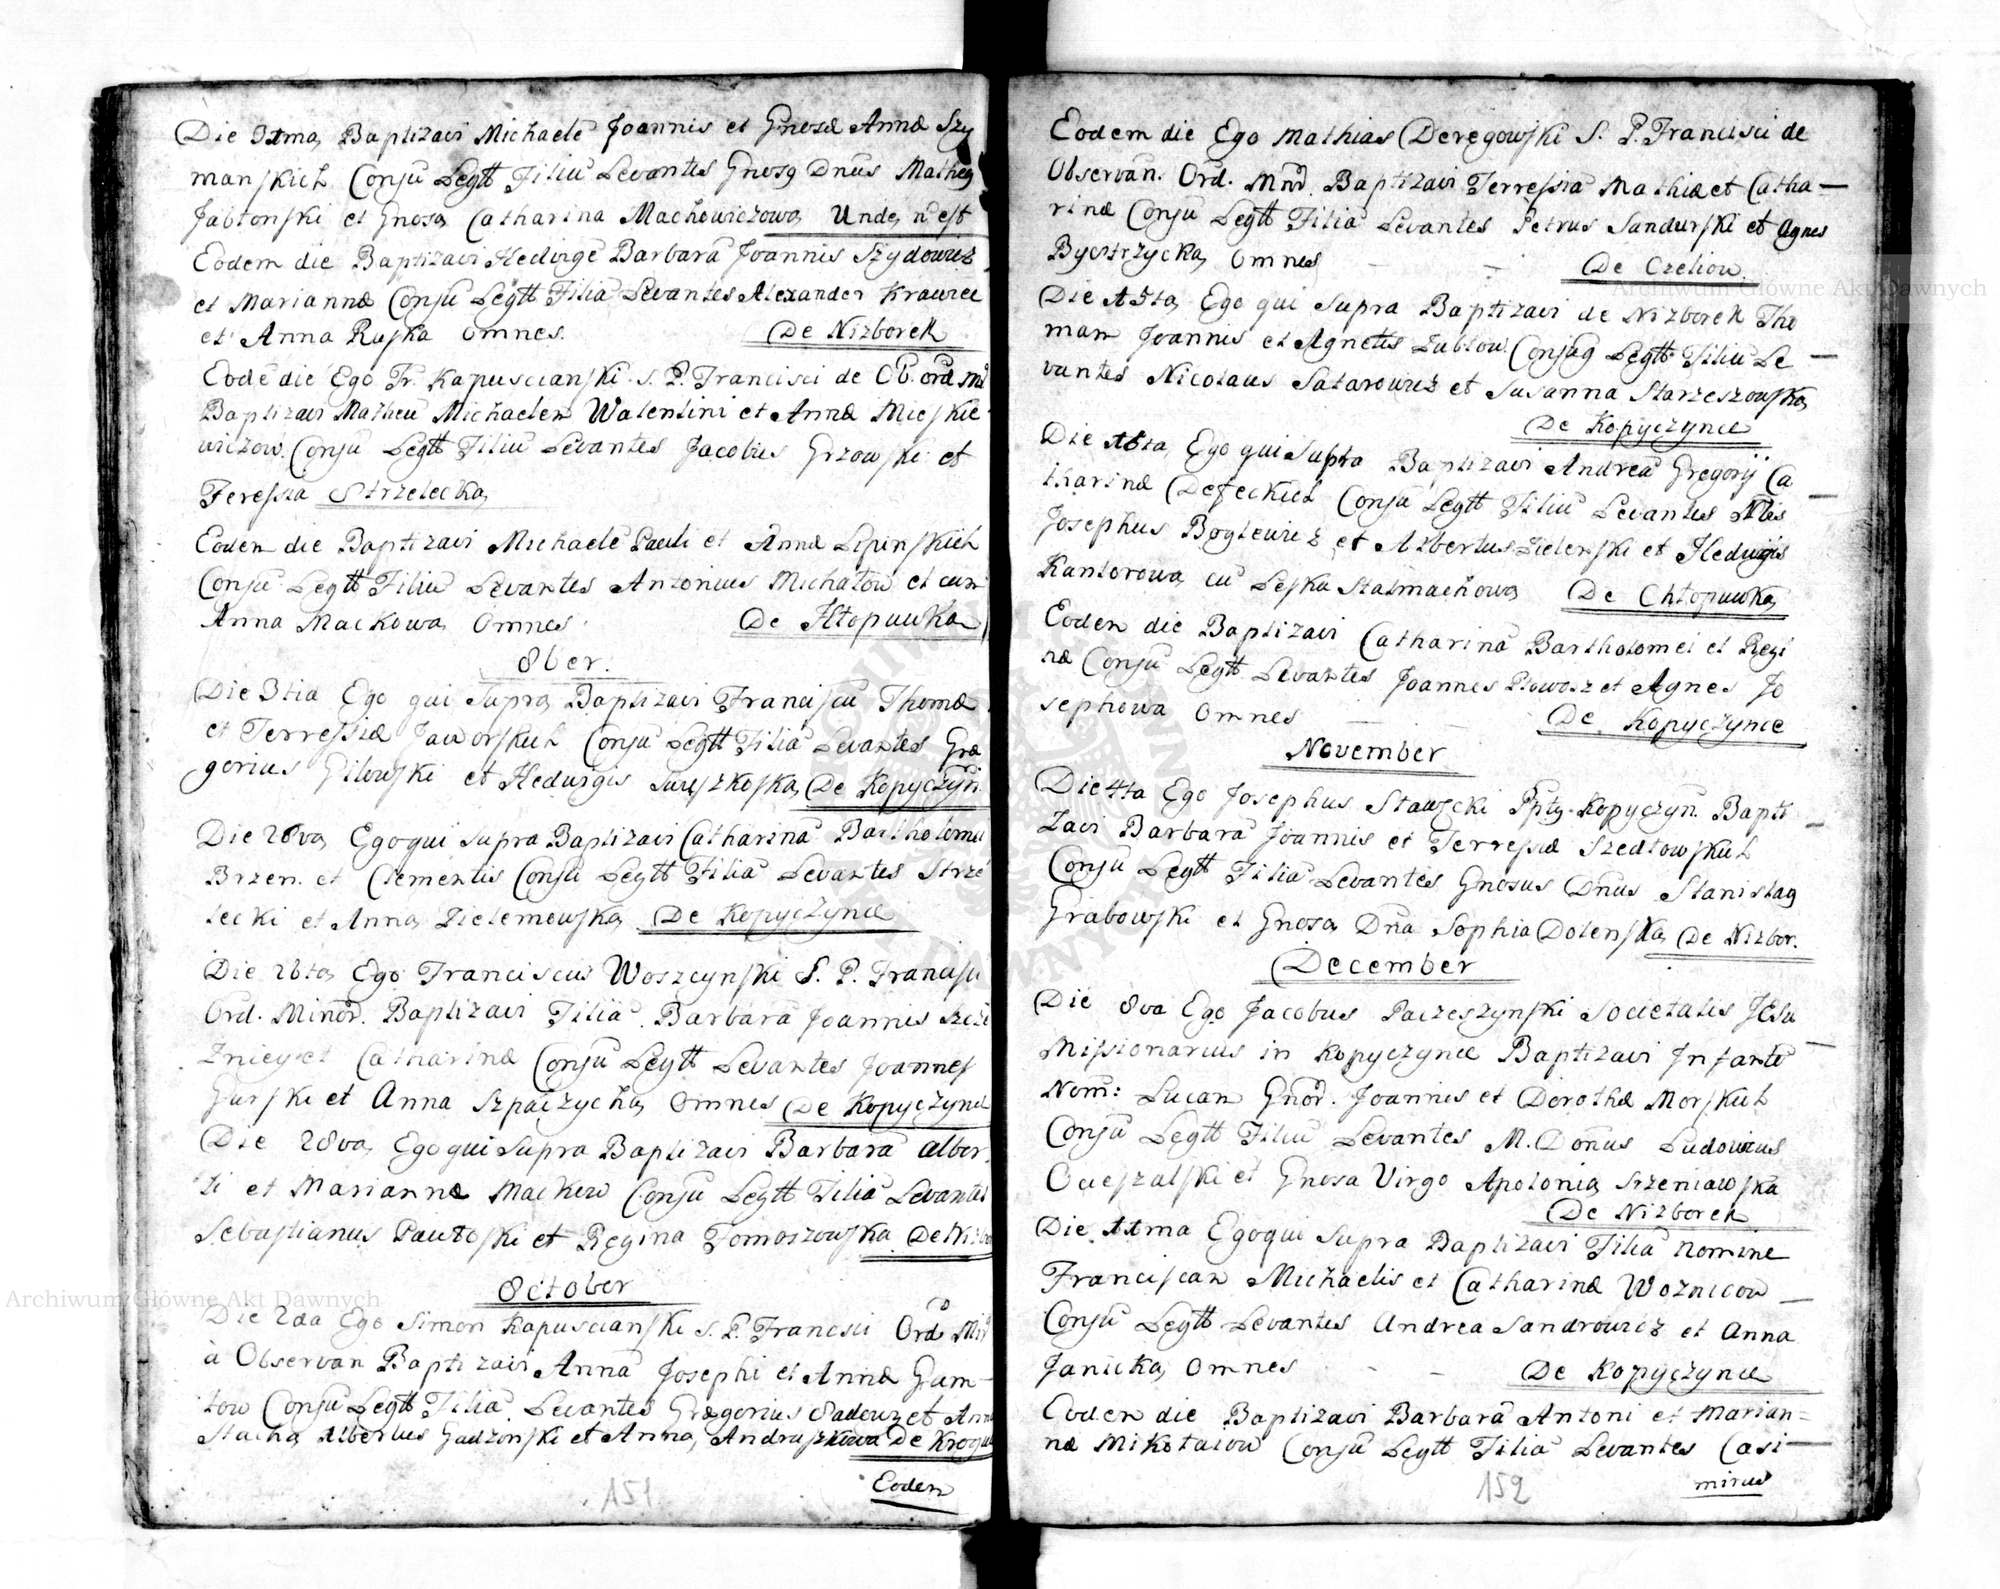 Die 31ma Baptizavi Michaelē Joannis et Gnosæ Annæ Szy
manskich Conjū Legtt Filiū Levantes Gnosg Dnūs Matheg
Jabłonski et Gnosa Catharina Machowiczowa Unde n̄ est
Eodem die Baptizavi Hedvigē Barbarā Joannis Szydowicz
et Mariannæ Conjū Legtt Filiā Levantes Alexander Krawiec
et Anna Ruska Omnes. De Nizborek
Eodē die Ego Fr. Kapuscianski S. P. Francisci de Ob. ord. Mi
Baptizavi Matheū Michaelem Walentini et Annæ Mieskie
wiczow. Conjū Legtt Filiū Levantes Jacobus Grzowski et
Teressia Strzelecka
Eodem die Baptizavi Michaelē Pauli et Annæ Lipinskich
Conjū Legtt Filiū Levantes Antonius Michałow et cum
Anna Mackowa Omnes De Hłopuwka
8ber.
Die 3tia Ego qui Supra Baptizavi Franciscū Thomæ
et Terressiæ Jaworskich Conjū Legtt Filiā Levantes Græ
gorius Gilewski et Hedvigis De Kopyczyn.
Die 28va Ego qui Supra Baptizavi Catharinā Bartholomei
Brzen. et Clementis Conjū Legtt Filiā Levantes Strze
lecki et Anna Zielemewska De Kopyczynce
Die 26ta Ego Franciscus Woszcynski S. P. Francisci
Ord. Minor. Baptizavi Filiā Barbarā Joannis
et Catharinæ Conjū Legtt Levantes Joannes
Gurski et Anna Szpaczycha Omnes De Kopyczynce
Die 28va Ego qui Supra Baptizavi Barbarā Alber
ti et Mariannæ Mackow Conjū Legtt Filiā Levantes
Sebastianus et Regina Tomoszowska De Nizbo
October
Die 2da Ego Simon Kapuscianski S. P. Francisci Ord Min
à Observan Baptizavi Annā Josephi et Annæ Gum-
low Conjū Legtt Filiā Levantes Grægorius Sadowz et Anna
Stacha Albertus Gudzonski et Anna Andruszkowa De Krogul
Eodem
151
Eodem die Ego Mathias Deregowski S. P. Francisci de
Observan. Ord. Mnr̄. Baptizavi Terressiā Mathiæ et Catha-
rinæ Conjū Legtt Filiā Levantes Petrus Sandurski et Agnes
Bystrzycka Omnes - - De Czeliow
Die 15ta Ego qui Supra Baptizavi de Nizborek Tho
mam Joannis et Agnetis Lubłow. Conjug Legtt Filiū Le-
vantes Nicolaus Satarowicz et Susanna Starzeszowska
De Kopyczynce
Die 16ta Ego qui Supra Baptizavi Andreā Gregorij Ca
tharinæ Defeckich Conjū Legtt Filiū Levantes Nblis
Josephus Boglewicz et Albertus Zielenski et Hedvigis
Kantorowa cū Leska Stalmachowa De Chłopuwka
Eodem die Baptizavi Catharinā Bartholomei et Regi
næ Conjū Legtt Levantes Joannes Plowosz et Agnes Jo
sephowa Omnes - - De Kopyczynce
November
Die 4ta Ego Josephus Stawecki Pptg Kopyczyn. Bapti-
zavi Barbarā Joannis et Terressiæ Szedłowskich
Conjū Legtt Filiā Levantes Gnosus Dnūs Stanislag
Grabowski et Gnosa Dn̄a Sophia Dolenska De Nizbor.
December
Die 8va Ego Jacobus Paczeszynski Societatis JEsu
Missionarius in Kopyczynce Baptizavi Infantē
Nom: Lucam Gnor̄. Joannis et Dorothæ Morskich
Conjū Legtt Filiū Levantes M. Don̄us Ludovicus
et Gnosa Virgo Apolonia Srzeniawska
De Nizborek
Die 11ma Ego qui Supra Baptizavi Filiā Nomine
Franciscam Michaelis et Catharinæ Woznicow-
Conjū Legtt Levantes Andrea Sandrowicz et Anna
Janicka Omnes - - De Kopyczynce
Eodem die Baptizavi Barbarā Antoni et Marian=
næ Mikołaiow Conjū Legtt Filiā Levantes Casi-
mirus
152
Archiwum Główne Akt Dawnych
Archiwum Główne Akt Dawnych